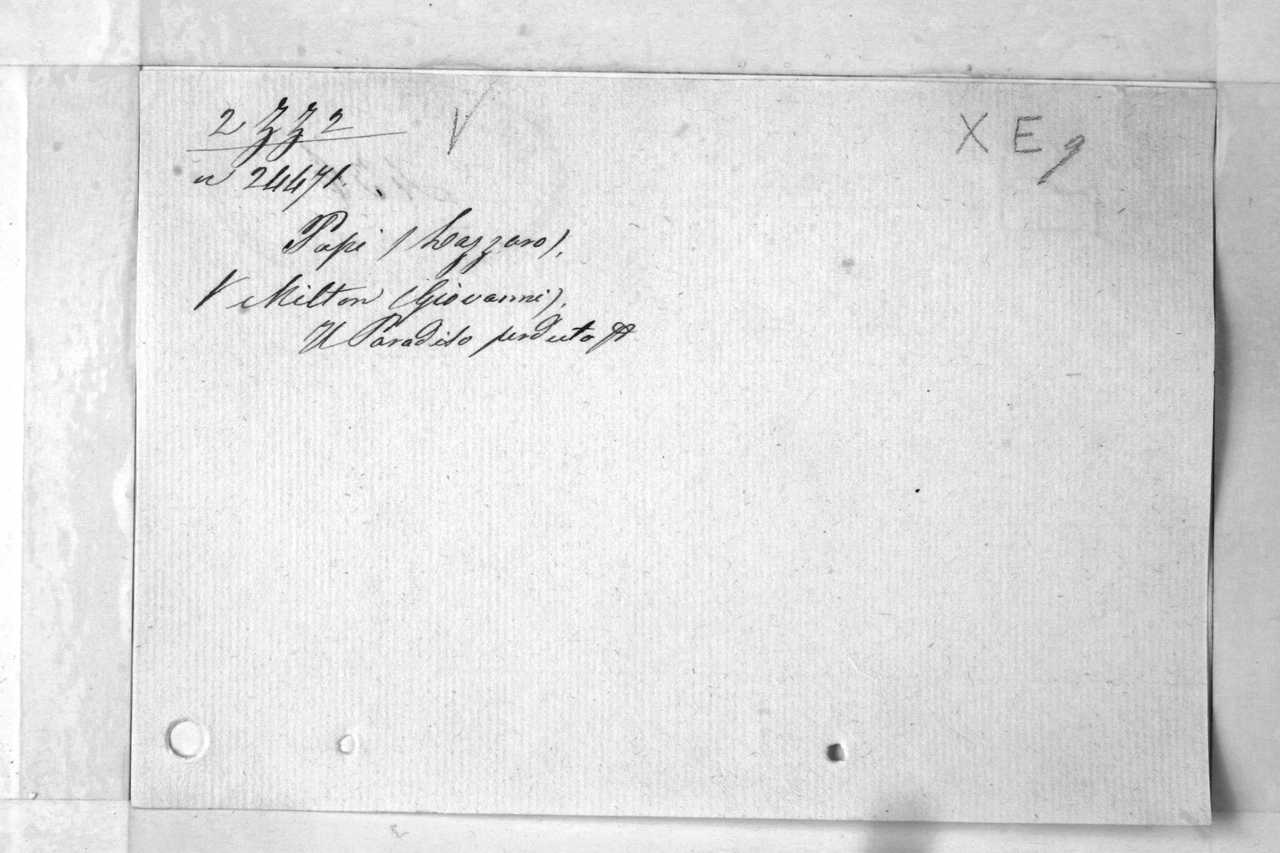 2 ZZ 2 V X E g
n 24471.
Papi (Lazzaro),
V Milton (Giovanni),
Il Paradiso perduto